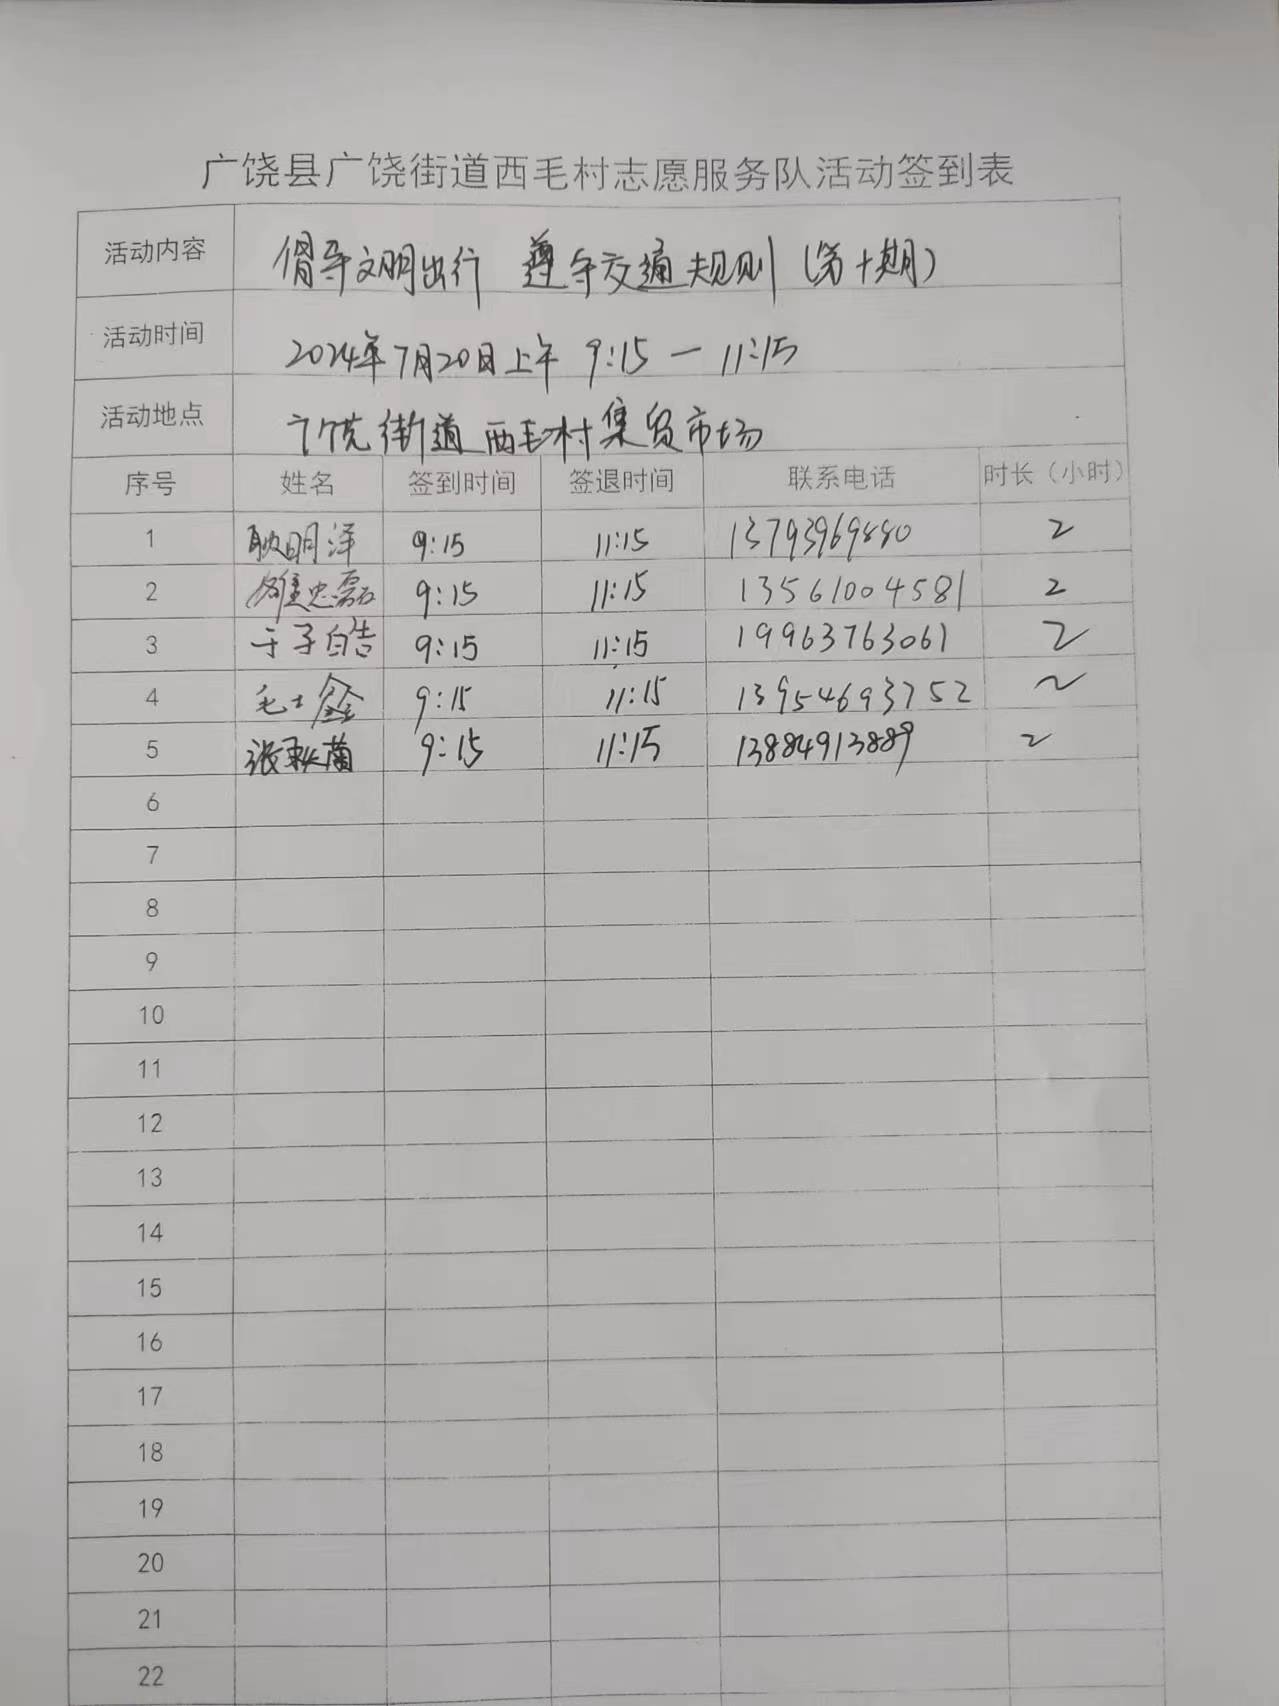 广饶县广饶街道西毛村志愿服务队活动签到表
活动内容 倡导文明出行 遵守交通规则（第十期）
活动时间 2024年7月20日上午 9:15 — 11:15
活动地点 广饶街道西毛村集贸市场
序号 姓名 签到时间 签退时间 联系电话 时长（小时）
1 耿明洋 9:15 11:15 13793969880 2
2 雒忠磊 9:15 11:15 13561004581 2
3 于子皓 9:15 11:15 19963763061 2
4 毛士鑫 9:15 11:15 13954693752 2
5 张秋菊 9:15 11:15 13884913889 2
6
7
8
9
10
11
12
13
14
15
16
17
18
19
20
21
22